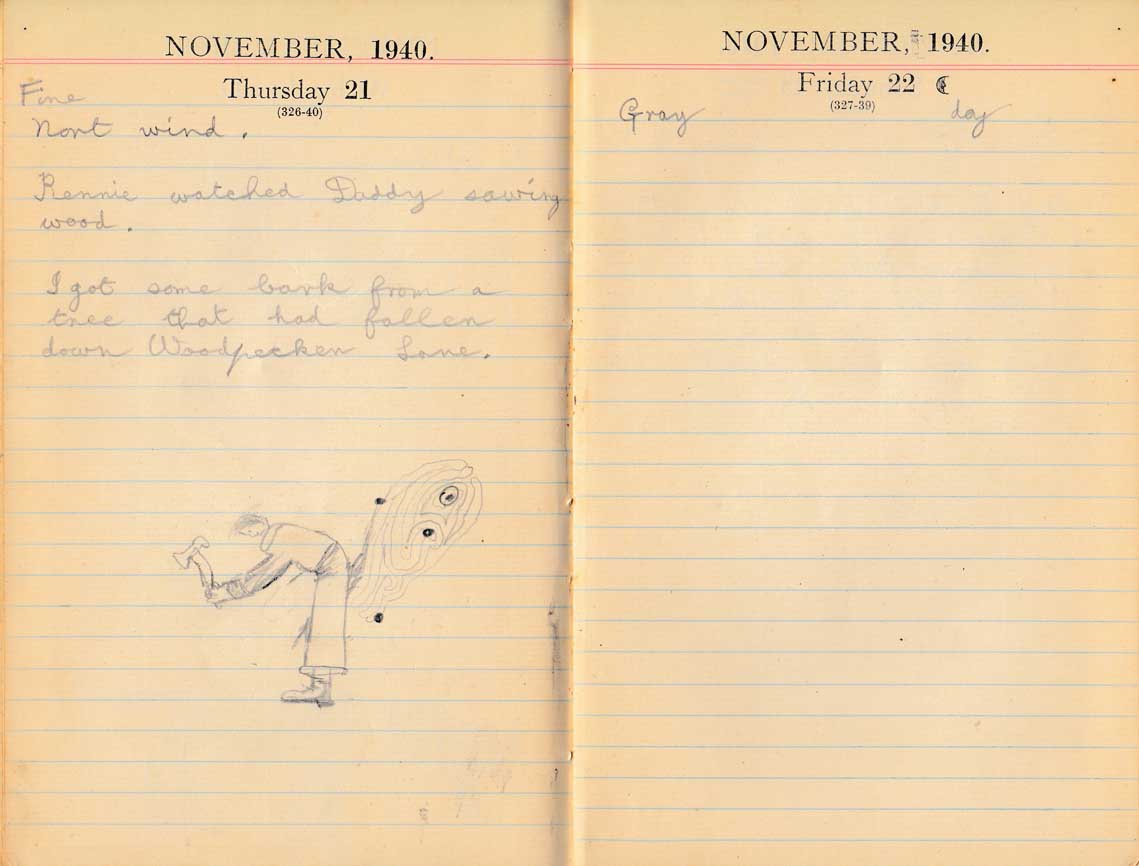 NOVEMBER, 1940.
Thursday 21
(326-40)
Fine
Nort wind.
Rennie watched Daddy sawing
wood.
I got some bark from a
tree that had fallen
down Woodpecker Lane.
NOVEMBER, 1940.
Friday 22
(327-39)
Gray day